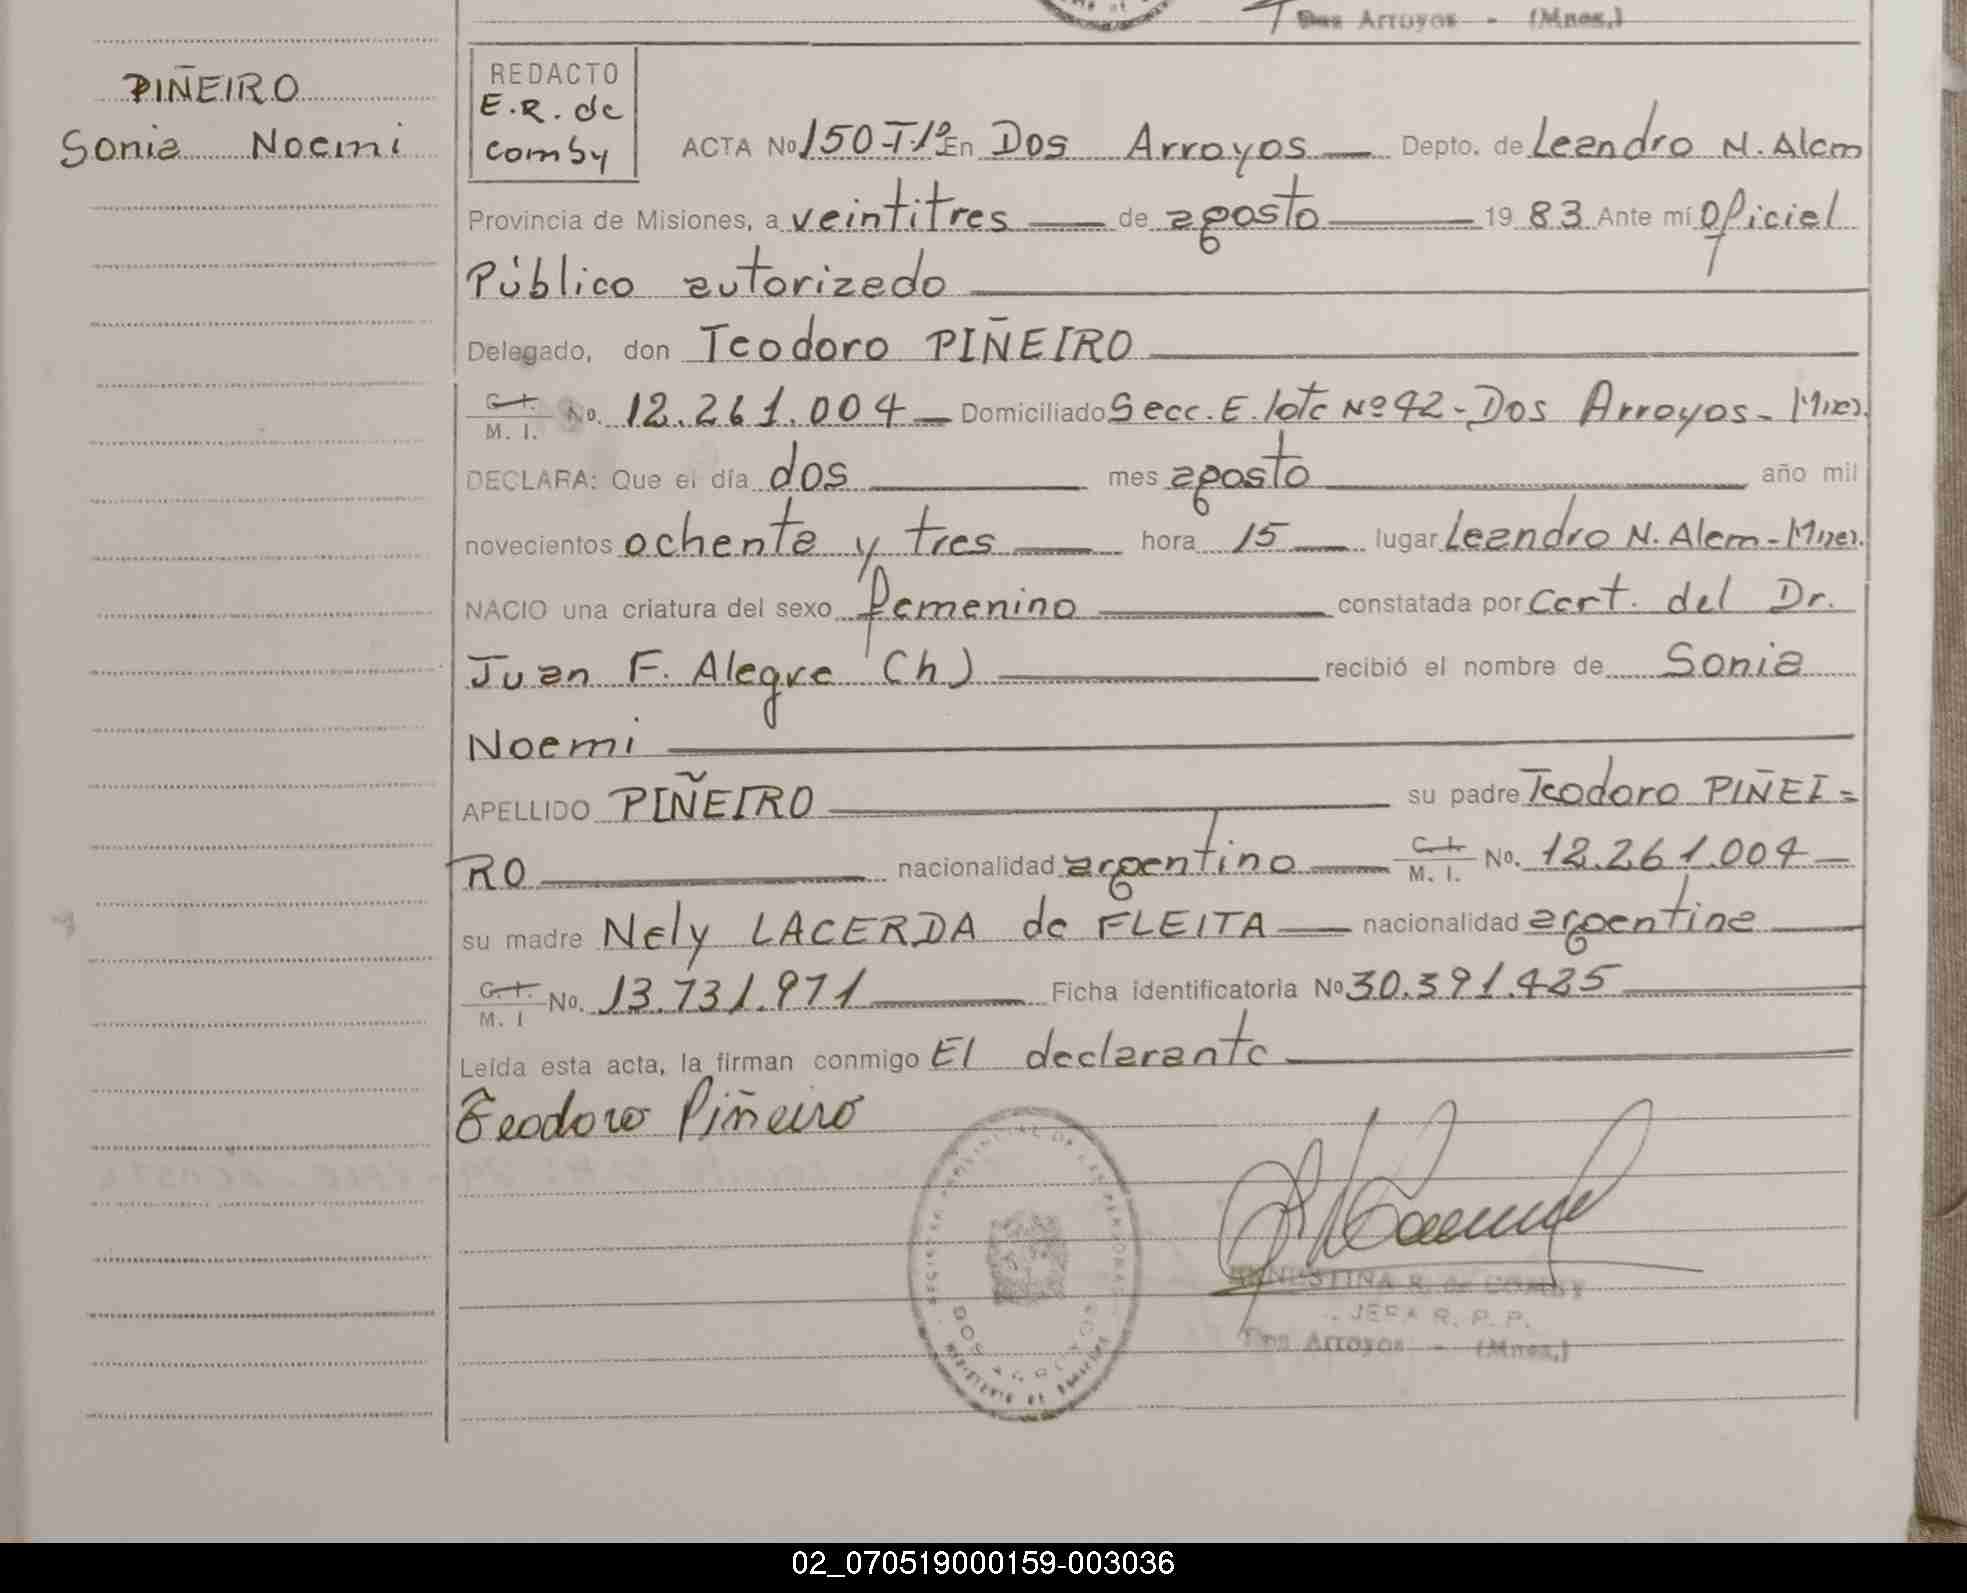 Dos Arroyos - (Mnes.)
PIÑEIRO
Sonia Noemi
REDACTO
E.R. de
Comby
ACTA No 150-T-1º En Dos Arroyos Depto. de Leandro N. Alem
Provincia de Misiones, a veintitres de agosto 19 83 Ante mí Oficial
Público autorizado
Delegado, don Teodoro PIÑEIRO
C. I. M. I. No. 12.261.004 Domiciliado Secc. E. lote Nº 42 - Dos Arroyos - Mnes.
DECLARA: Que el día dos mes agosto año mil
novecientos ochenta y tres hora 15 lugar Leandro N. Alem - Mnes.
NACIO una criatura del sexo femenino constatada por Cert. del Dr.
Juan F. Alegre (h) recibió el nombre de Sonia
Noemi
APELLIDO PIÑEIRO su padre Teodoro PIÑEI=
RO nacionalidad argentino C. I. M. I. No. 12.261.004
su madre Nely LACERDA de FLEITA nacionalidad argentina
C. I. M. I No. 13.731.971 Ficha identificatoria No 30.391.425
Leída esta acta, la firman conmigo El declarante
Teodoro Piñeiro
DOS ARROYOS
R. de COMBY
JEFA R. P. P.
Dos Arroyos - (Mnes.)
02_070519000159-003036